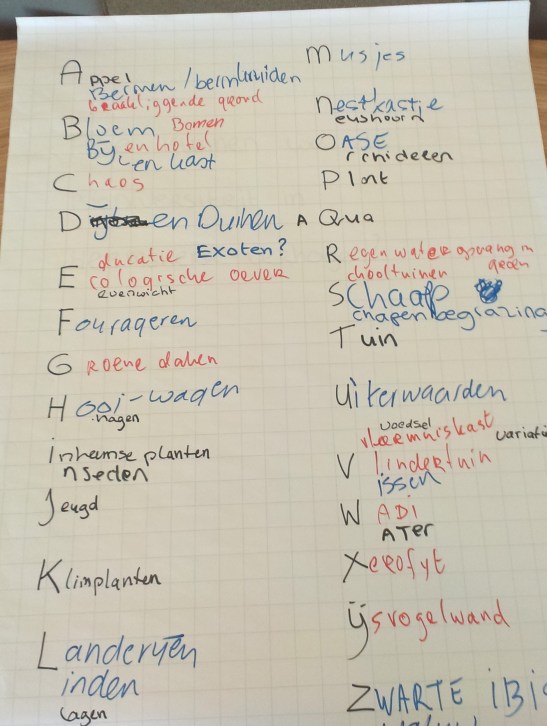 Appel
Bermen / bermkruiden
braakliggende grond
Bloem Bomen
Bijenhotel
en kast
Chaos
Dijken en Duinen
ducatie Exoten?
Ecologische oever
evenwicht
Fourageren
Groene daken
Hooi-wagen
hagen
inheemse planten
nsecten
Jeugd
Klimplanten
Landerijen
inden
lagen
Musjes
nestkastje
eushoorn
OASE
rchideeen
Plant
A Qua
Regenwateropvang in
chooltuinen
SChaap
chapenbegrazing
Tuin
Uiterwaarden
voedsel
vleermuiskast
variati
Vlindertuin
issen
WADI
ATer
Xerofyt
ijsvogelwand
ZWARTE iBiS